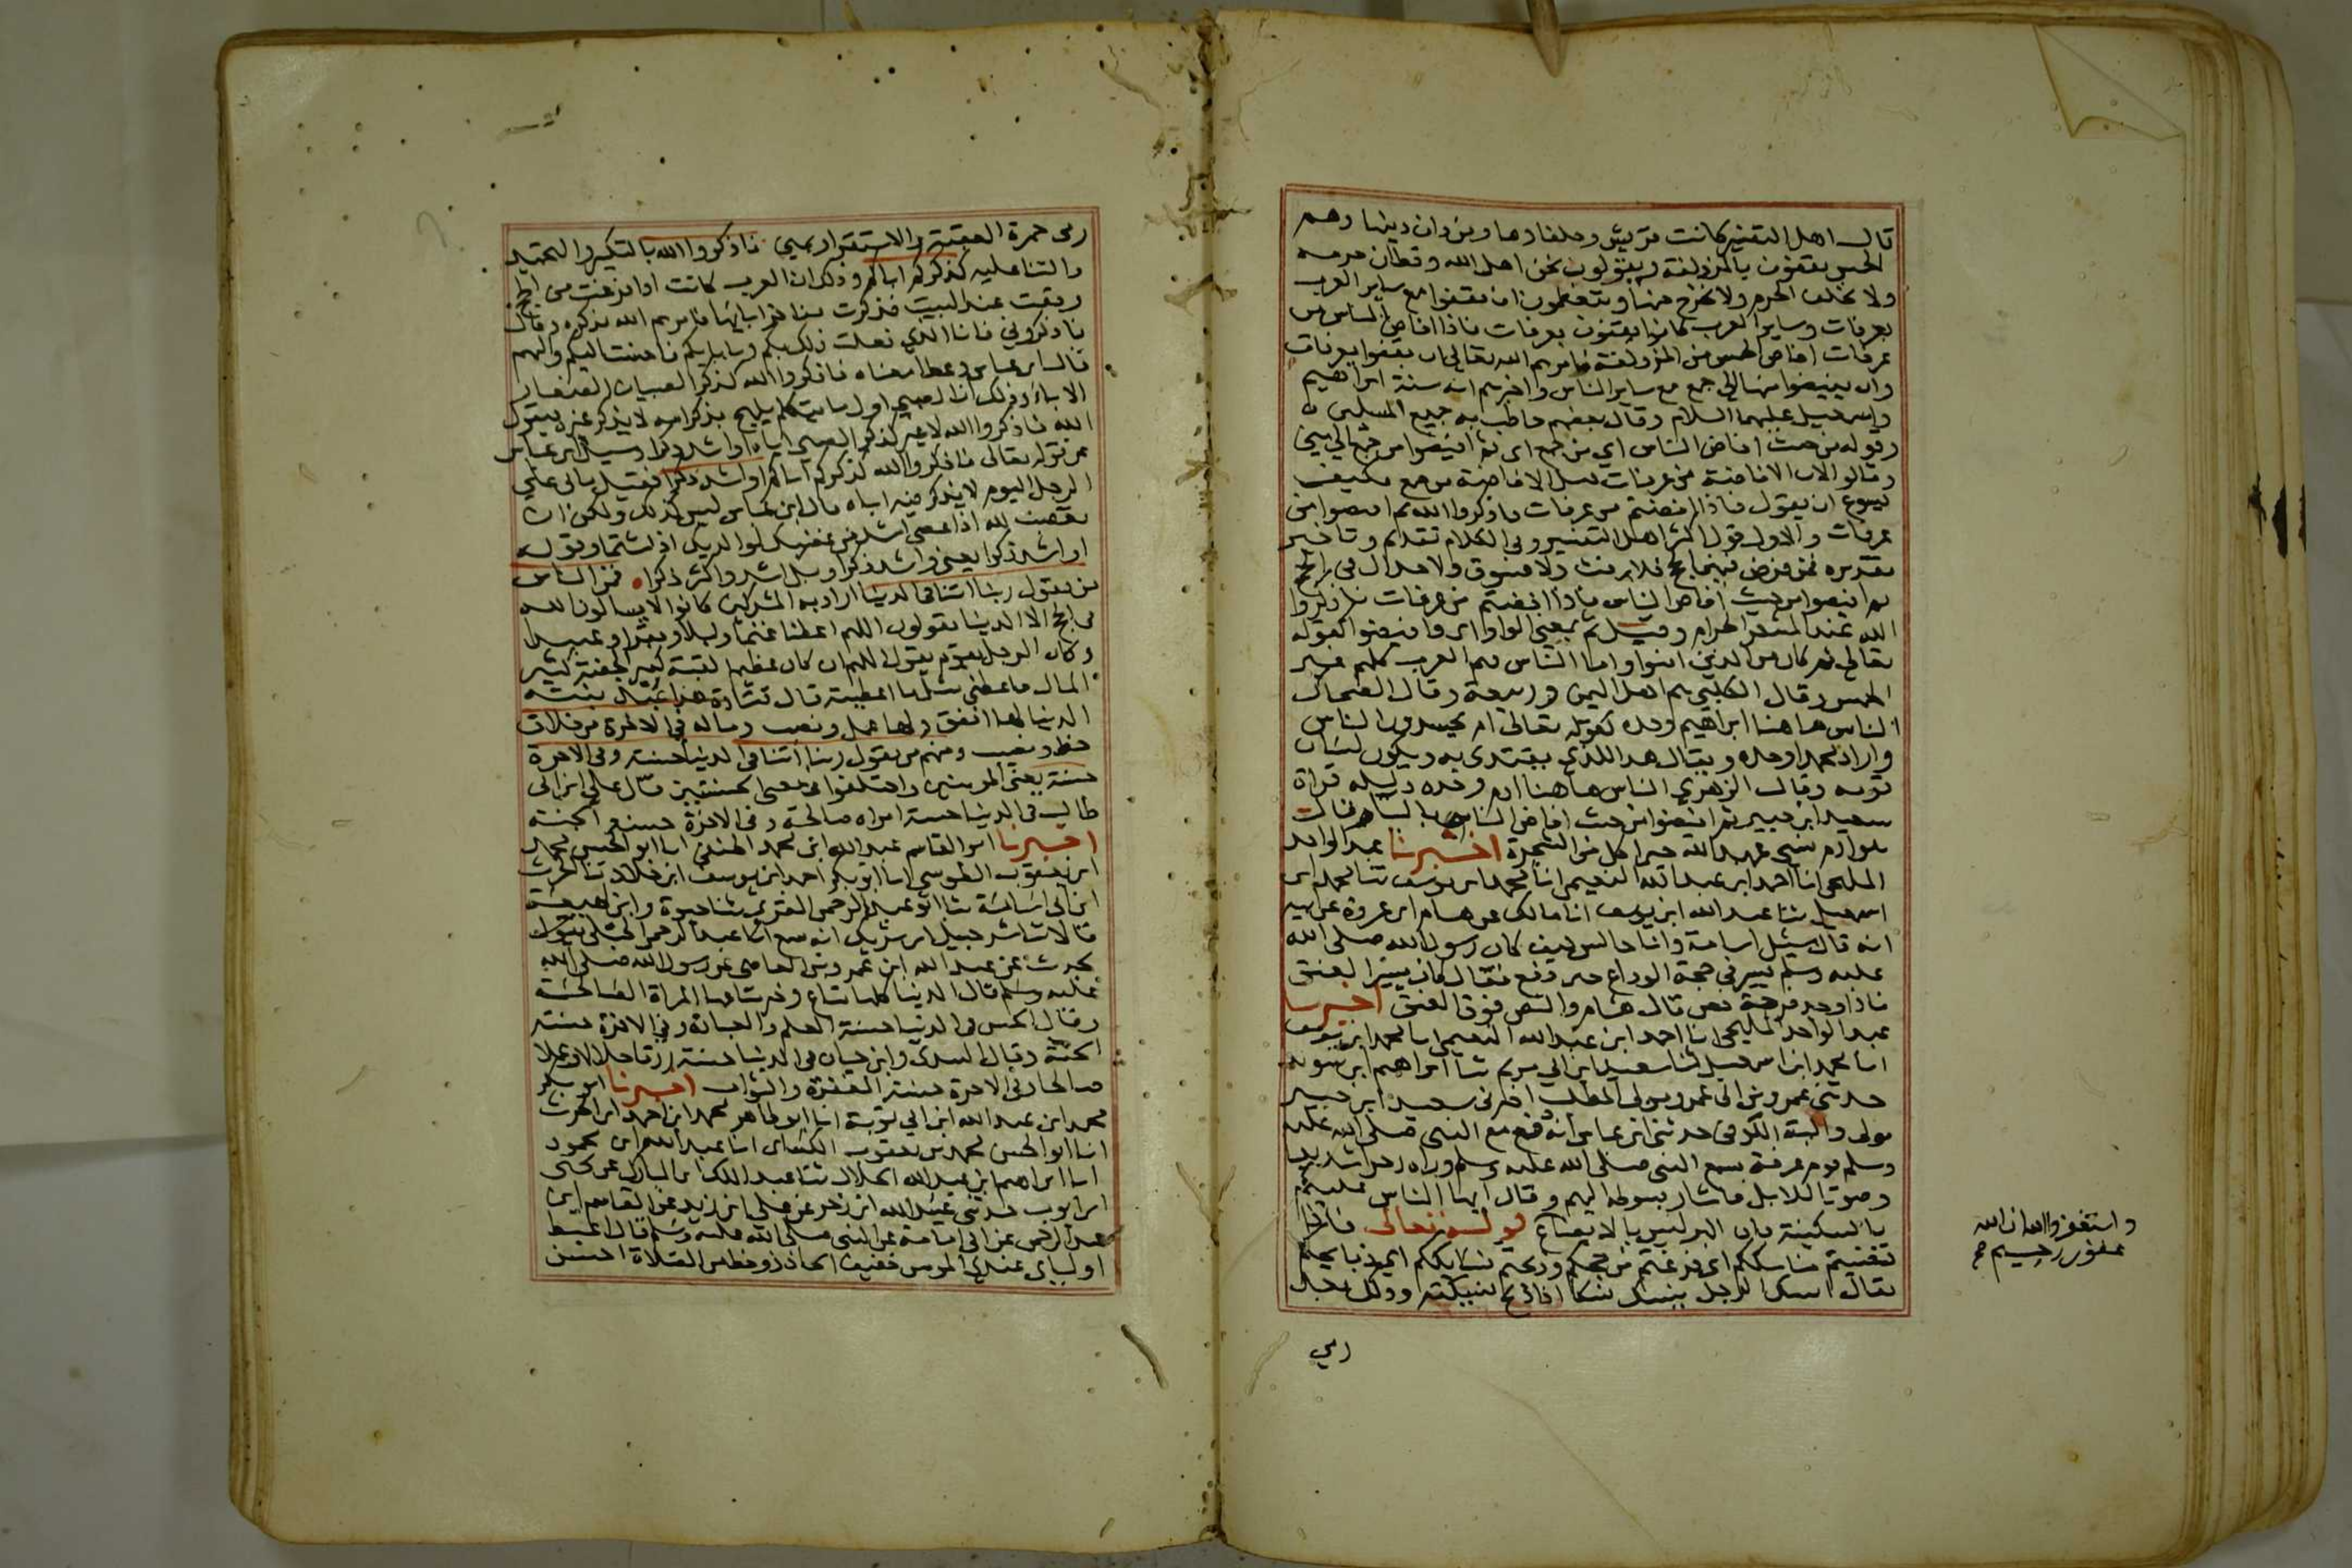 قال اهل التفسير كانت قريش وحلفاوها ومن دان دينها وهم
الحمس يقفون بالمزدلفة ويقولون نحن اهل الله وقطان حرمه
ولا نخلف الحرم ولا نخرج منها ويتعظمون ان يقفوا مع ساير العرب
بعرفات وساير العرب كانوا يقفون بعرفات فاذا افاض الناس من
عرفات افاض الحمس من المزدلفة فامرهم الله تعالى ان يقفوا بعرفات
وان يفيضوا منها الى جمع مع ساير الناس واخبرهم انه سنة ابراهيم
واسمعيل عليهما السلام وقال بعضهم خاطب به جميع المسلمين
وقوله من حيث افاض الناس اي من جمع اى ثم افيضوا من جمع الى منى
وقالوا لان الافاضة من عرفات قبل الافاضة من جمع فكيف
يسوغ ان يقول فاذا افضتم من عرفات فاذكروا الله ثم افيضوا من
عرفات والاول قول اكثر اهل التفسير وفي الكلام تقديم وتاخير
تقديره فمن فرض فيهن الحج فلا رفث ولا فسوق ولا جدال في الحج
ثم افيضوا من حيث افاض الناس فاذا افضتم من عرفات فاذكروا
الله عند المشعر الحرام وقيل ثم بمعنى الواو اى وافيضوا كقوله
تعالى ثم كان من الذين امنوا واما الناس فهم العرب كلهم غير
الحمس وقال الكلبي هم اهل اليمن وربيعة وقال الضحاك
الناس هاهنا ابراهيم وحده كقوله تعالى ام يحسدون الناس
واراد محمدا وحده ويقال هذا للذي يقتدى به ويكون لسان
قومه وقال الزهري الناس هاهنا ادم وحده دليله قراة
سعيد ابن جبير ثم افيضوا من حيث افاض الناس بالياء قال
هو ادم نسي عهد الله حين اكل من الشجرة اخبرنا عبد الواحد
المليحى انا احمد ابن عبد الله النعيمي انا محمد ابن يوسف ثنا محمد ابن
اسمعيل ثنا عبد الله ابن يوسف انا مالك عن هشام ابن عروة عن ابيه
انه قال سئل اسامة وانا جالس كيف كان رسول الله صلى الله
عليه وسلم يسير في حجة الوداع حين دفع فقال كان يسير العنق
فاذا وجد فرجة نص قال هشام والنص فوق العنق اخبرنا
عبد الواحد المليحى انا احمد ابن عبد الله النعيمي انا محمد ابن يوسف
انا محمد ابن اسمعيل ثنا سعيد ابن ابي مريم ثنا ابراهيم ابن سويد
حدثني عمرو بن ابى عمرو مولى المطلب اخبرني سعيد ابن جبير
مولى والبة الكوفى حدثني ابن عباس انه دفع مع النبي صلى الله عليه
وسلم يوم عرفة فسمع النبي صلى الله عليه وسلم وراه زجرا شديدا
وصوتا للابل فاشار بسوطه اليهم وقال ايها الناس عليكم
بالسكينة فان البر ليس بالايضاع قوله تعالى فاذا
قضيتم مناسككم اى فرغتم من حجكم وذبحتم نسائككم اى ذبايحكم
يقال نسك الرجل ينسك نسكا اذا ذبح نسيكته وذلك بعد
رمي
واستغفروا الله ان الله
غفور رحيم صح
رمى جمرة العقبة والاستقرار بمنى فاذكروا الله بالتكبير والتحميد
والثنا عليه كذكركم اباكم وذلك ان العرب كانت اذا فرغت من الحج
وقفت عند البيت فذكرت مفاخر ابايها فامرهم الله بذكره وقال
فاذكروني فانا الذي فعلت ذلك بكم وبابايكم فاحسنت اليكم واليهم
قال ابن عباس وعطا معناه فاذكروا الله كذكر الصبيان الصغار
الاباء وذلك ان الصبي اول ما يتكلم يلهج بذكر ابيه لا يذكر غيره فيقول
الله فاذكروا الله لا غير كذكر الصبي اباه او اشد وسئل ابن عباس
عن قوله تعالى فاذكروا الله كذكركم اباكم او اشد ذكرا فقيل ياتى على
الرجل اليوم لا يذكر فيه اباه قال ابن عباس ليس كذلك ولكن ان
تغضب لله اذا عصى اشد من غضبك لوالديك اذا شتما وقوله
او اشد ذكرا يعني واشد ذكرا وبل اشد واكثر ذكرا فمن الناس
من يقول ربنا اتنا في الدنيا اراد به المشركين كانوا لا يسالون الله
في الحج الا الدنيا يقولون اللهم اعطنا غنما وابلا وبقرا وعبيدا
وكان الرجل يقوم يقول اللهم ان كان عظيم القبة كبير الجفنة كثير
المال فاعطني مثل ما اعطيته قال قتادة هذا عبد نيته
الدنيا لها انفق ولها عمل ونصب وما له في الاخرة من خلاق
حظ ونصيب ومنهم من يقول ربنا اتنا في الدنيا حسنة وفي الاخرة
حسنة يعني المومنين واختلفوا في معنى الحسنتين قال علي ابن ابى
طالب في الدنيا حسنة امراة صالحة وفي الاخرة حسنة الجنة
اخبرنا ابو القاسم عبد الله ابن محمد الحنفي انا ابو الحسن محمد
ابن يعقوب الطوسي انا ابو بكر احمد ابن يوسف ابن خلاد ثنا الحرث
ابن ابى اسامة ثنا ابو عبد الرحمن المقري ثنا حيوة وابن لهيعة
قالا ثنا شرحبيل ابن شريك انه سمع ابا عبد الرحمن الحبلى يقول
يحدث عن عبد الله ابن عمرو بن العاصى عن رسول الله صلى الله
عليه وسلم قال الدنيا كلها متاع وخير متاعها المراة الصالحة
وقال الحسن في الدنيا حسنة العلم والعبادة وفي الاخرة حسنة
الجنة وقال السدي وابن حيان في الدنيا حسنة رزقا حلالا وعملا
صالحا وفي الاخرة حسنة المغفرة والثواب اخبرنا ابو بكر
محمد ابن عبد الله ابن ابي توبة انا ابو طاهر محمد ابن احمد ابن الحرث
انا ابو الحسن محمد بن يعقوب الكساى انا عبد الله ابن محمود
انا ابراهيم ابن عبد الله الخلال ثنا عبد الله ابن المبارك عن يحيى
ابن ايوب حدثني عبيد الله ابن زحر عن علي ابن زيد عن القاسم ابن
عبد الرحمن عن ابى امامة عن النبي صلى الله عليه وسلم قال اغبط
اوليائى عندي المومن خفيف الحاذ ذو حظ من الصلاة احسن